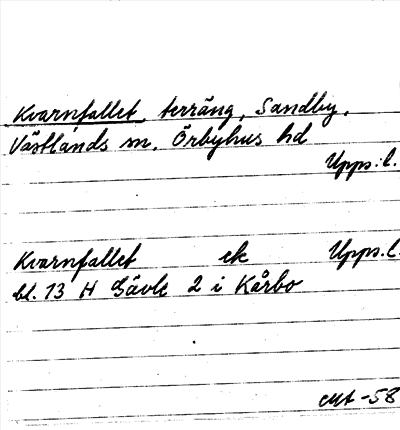 Kvarnfallet terräng, Sandby,
Västlands sn. Örbyhus hd
Upps. l.
Kvarnfallet ek Upps. l.
bl. 13 H Gävle 2 i Kårbo
Mt -58